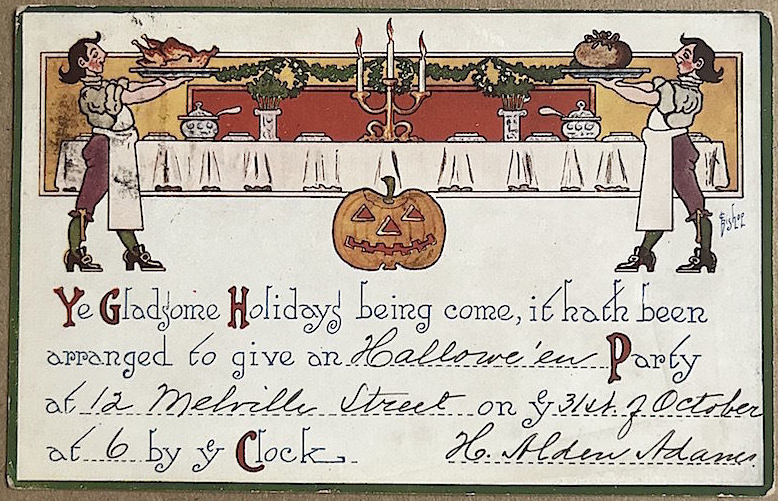 C Bishop
Ye Gladsome Holidays being come, it hath been
arranged to give an Hallowe'en Party
at 12 Melville Street on yͤ 31st. of October
at 6 by yͤ Clock H. Alden Adams.